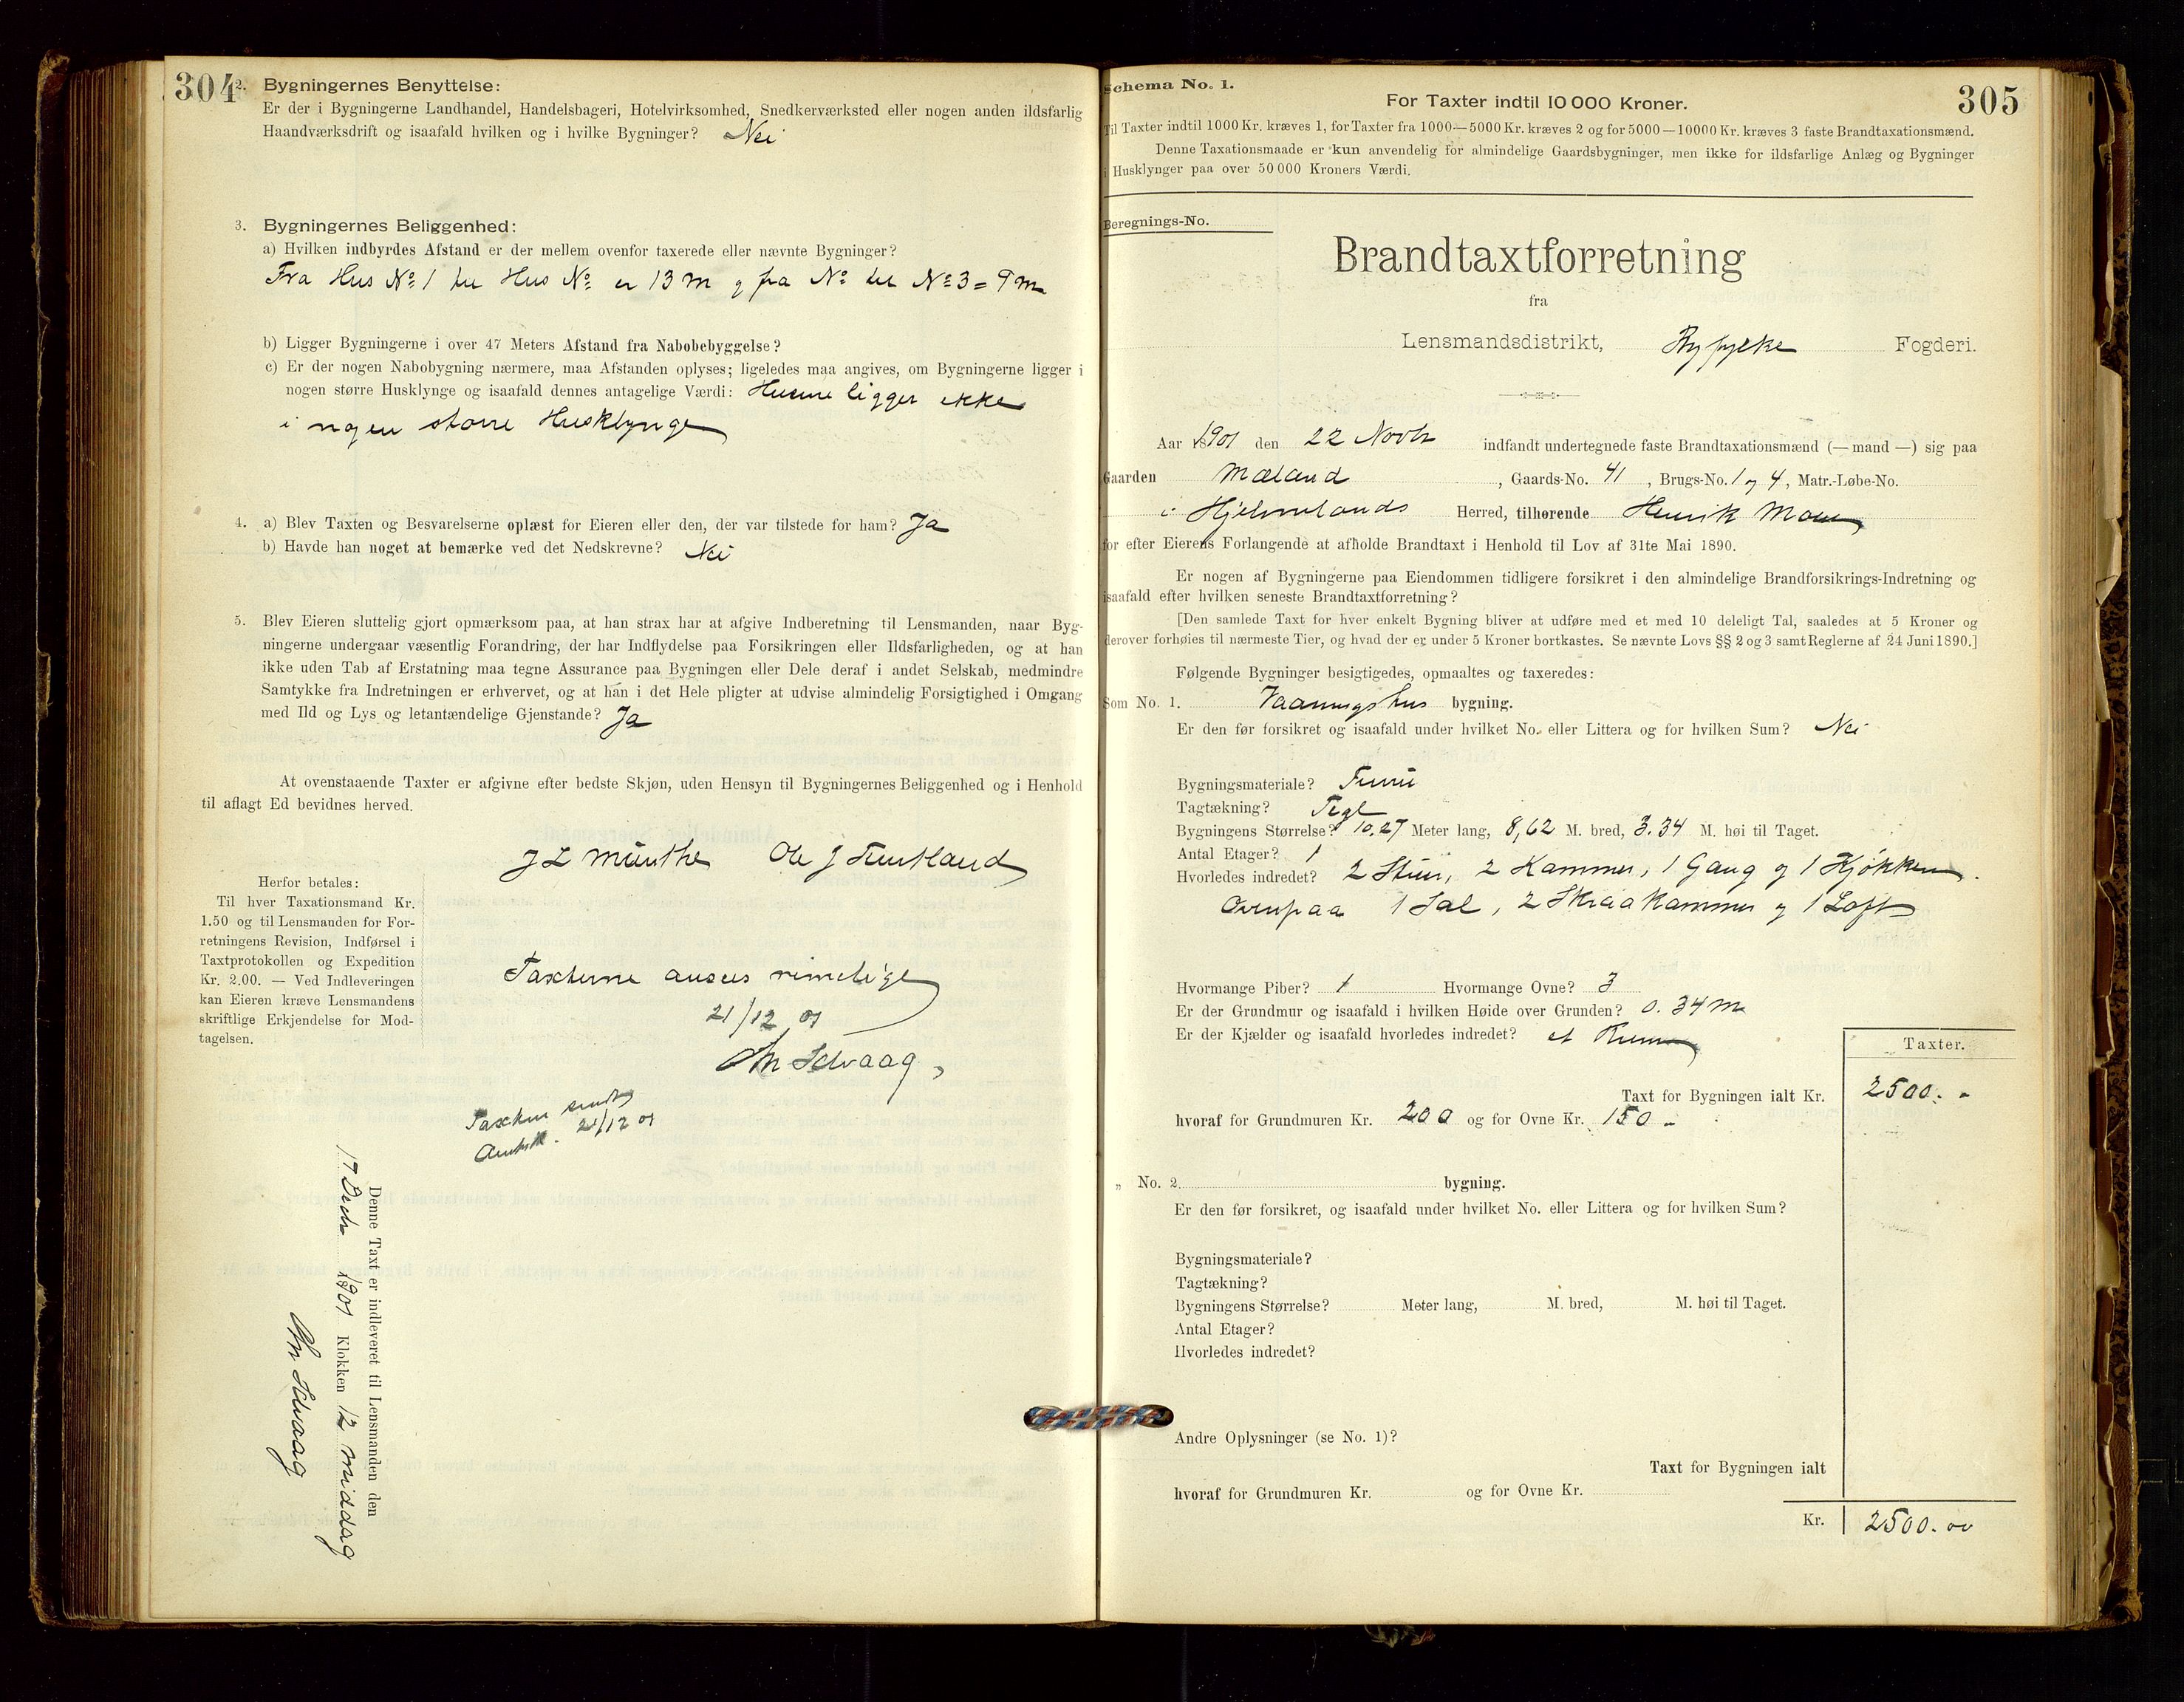 304
2. Bygningernes Benyttelse:
Er der i Bygningerne Landhandel, Handelsbageri, Hotelvirksomhed, Snedkerværksted eller nogen anden ildsfarlig
Haandværksdrift og isaafald hvilken og i hvilke Bygninger? Nei
3. Bygningernes Beliggenhed:
a) Hvilken indbyrdes Afstand er der mellem ovenfor taxerede eller nævnte Bygninger?
Fra Hus No 1 til Hus No er 13 m og fra No til No 3 = 9 m
b) Ligger Bygningerne i over 47 Meters Afstand fra Nabobebyggelse?
c) Er der nogen Nabobygning nærmere, maa Afstanden oplyses; ligeledes maa angives, om Bygningerne ligger i
nogen større Husklynge og isaafald dennes antagelige Værdi: Husene ligger ikke
i nogen større Husklynge
4. a) Blev Taxten og Besvarelserne oplæst for Eieren eller den, der var tilstede for ham? Ja
b) Havde han noget at bemærke ved det Nedskrevne? Nei
5. Blev Eieren sluttelig gjort opmærksom paa, at han strax har at afgive Indberetning til Lensmanden, naar Byg-
ningerne undergaar væsentlig Forandring, der har Indflydelse paa Forsikringen eller Ildsfarligheden, og at han
ikke uden Tab af Erstatning maa tegne Assurance paa Bygningen eller Dele deraf i andet Selskab, medmindre
Samtykke fra Indretningen er erhvervet, og at han i det Hele pligter at udvise almindelig Forsigtighed i Omgang
med Ild og Lys og letantændelige Gjenstande? Ja
At ovenstaaende Taxter er afgivne efter bedste Skjøn, uden Hensyn til Bygningernes Beliggenhed og i Henhold
til aflagt Ed bevidnes herved.
J L Münthe Ole J
Herfor betales:
Til hver Taxationsmand Kr.
1.50 og til Lensmanden for For-
retningens Revision, Indførsel i
Taxtprotokollen og Expedition
Kr. 2.00. — Ved Indleveringen
kan Eieren kræve Lensmandens
skriftlige Erkjendelse for Mod-
tagelsen.
Taxterne ansees rimelige
21/12 01
Selvaag
Taxten sendt
Amtsk. 21/12 01
Denne Taxt er indleveret til Lensmanden den
17 Decbr 1901 Klokken 12 middag
Selvaag
305
Schema No. 1.
For Taxter indtil 10 000 Kroner.
Til Taxter indtil 1000 Kr. kræves 1, for Taxter fra 1000—5000 Kr. kræves 2 og for 5000—10000 Kr. kræves 3 faste Brandtaxationsmænd.
Denne Taxationsmaade er kun anvendelig for almindelige Gaardsbygninger, men ikke for ildsfarlige Anlæg og Bygninger
i Husklynger paa over 50 000 Kroners Værdi.
Beregnings-No.
Brandtaxtforretning
fra
Lensmandsdistrikt, Ryfylke Fogderi.
Aar 1901 den 22 Novbr indfandt undertegnede faste Brandtaxationsmænd (—mand—) sig paa
Gaarden Mæland, Gaards-No. 41, Brugs-No. 1 og 4, Matr.-Løbe-No.
i Hjelmelands Herred, tilhørende Henrik
for efter Eierens Forlangende at afholde Brandtaxt i Henhold til Lov af 31te Mai 1890.
Er nogen af Bygningerne paa Eiendommen tidligere forsikret i den almindelige Brandforsikrings-Indretning og
isaafald efter hvilken seneste Brandtaxtforretning?
[Den samlede Taxt for hver enkelt Bygning bliver at udføre med et med 10 deleligt Tal, saaledes at 5 Kroner og
derover forhøies til nærmeste Tier, og hvad der er under 5 Kroner bortkastes. Se nævnte Lovs §§ 2 og 3 samt Reglerne af 24 Juni 1890.]
Følgende Bygninger besigtigedes, opmaaltes og taxeredes:
Som No. 1. Vaaningshus bygning.
Er den før forsikret og isaafald under hvilket No. eller Littera og for hvilken Sum? Nei
Bygningsmateriale? Furu
Tagtækning? Tegl
Bygningens Størrelse? 10,27 Meter lang, 8,62 M. bred, 3.34 M. høi til Taget.
Antal Etager? 1
Hvorledes indredet? 2 Stuer, 2 Kammer, 1 Gang og 1 Kjøkken.
Ovenpaa 1 Sal, 2 Skraakammer og 1 Loft
Hvormange Piber? 1 Hvormange Ovne? 3
Er der Grundmur og isaafald i hvilken Høide over Grunden? 0.34 m
Er der Kjælder og isaafald hvorledes indredet? et Rum
Taxter.
Taxt for Bygningen ialt Kr. 2500. -
hvoraf for Grundmuren Kr. 200 og for Ovne Kr. 150 -
„ No. 2. bygning.
Er den før forsikret, og isaafald under hvilket No. eller Littera og for hvilken Sum?
Bygningsmateriale?
Tagtækning?
Bygningens Størrelse? Meter lang, M. bred, M. høi til Taget.
Antal Etager?
Hvorledes indredet?
Andre Oplysninger (se No. 1)?
Taxt for Bygningen ialt
hvoraf for Grundmuren Kr. og for Ovne Kr.
Kr. 2500. 00